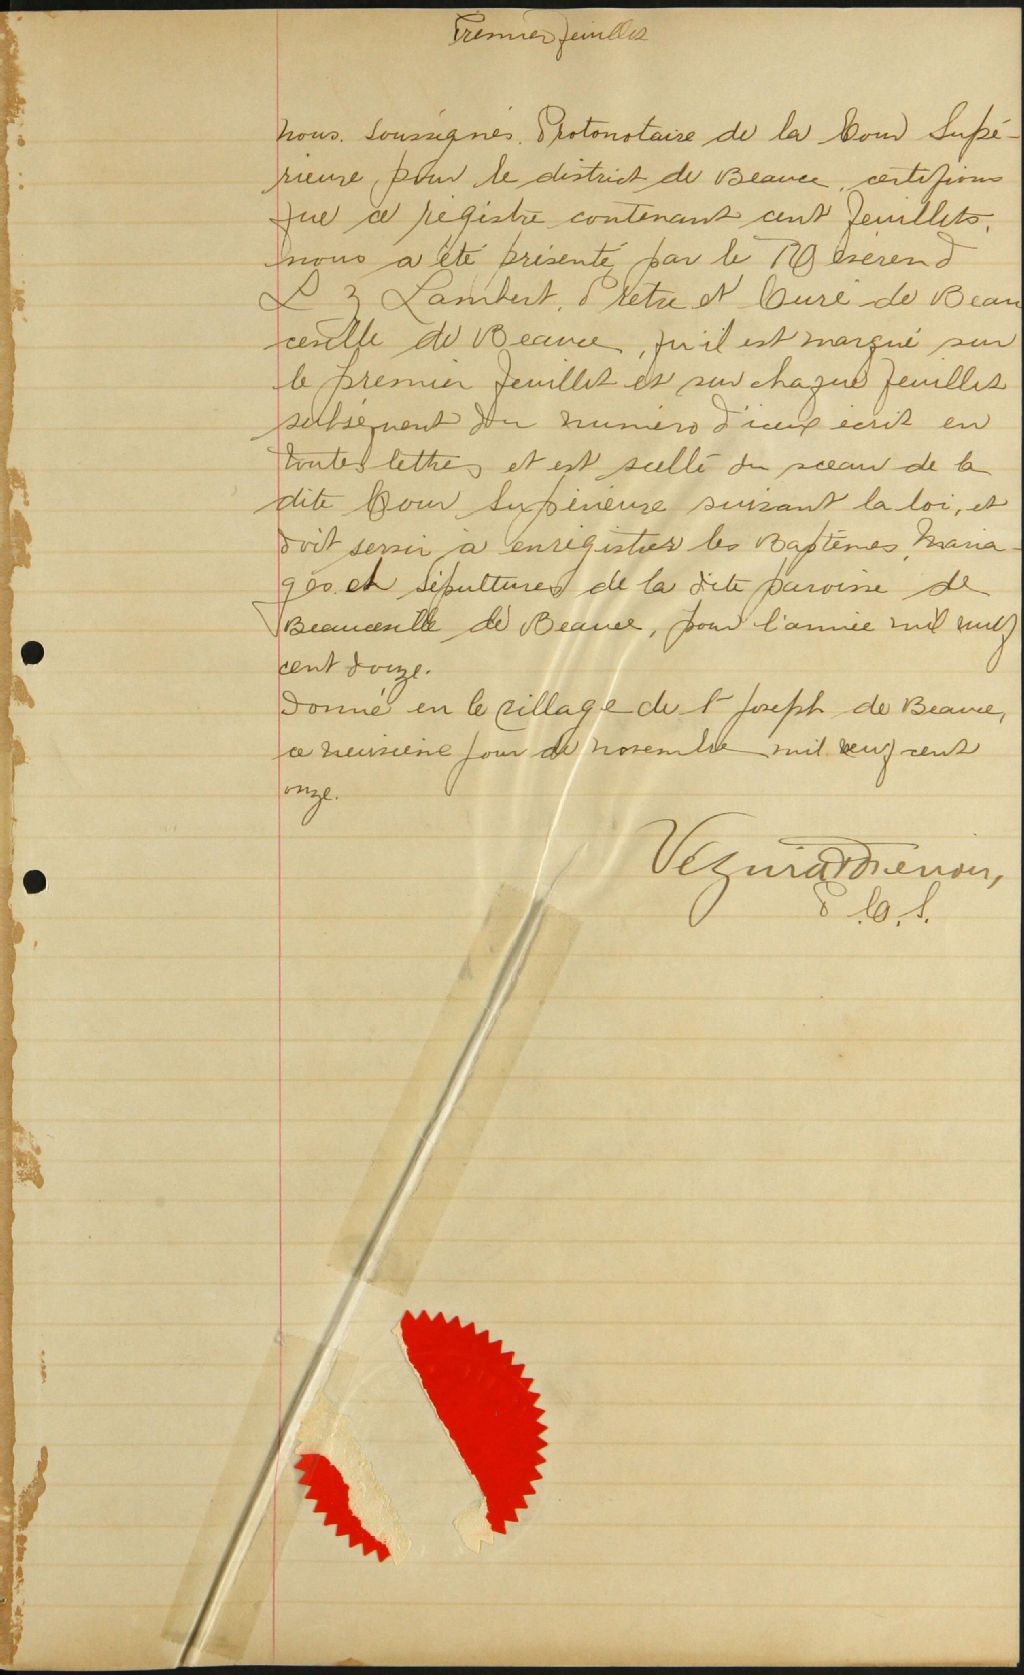 Premier feuillet
Nous soussignés, Protonotaire de la Cour Supé-
rieure, pour le district de Beauce, certifions
que ce régistre contenant cent feuillets,
nous a été présenté par le Révérend
L Z Lambert, Prêtre et Curé de Beau
ceville de Beauce, qu'il est marqué sur
le premier feuillet et sur chaque feuillet
subséquent du numéro d'iceux écrit en
toutes lettres et est scellé du sceau de la
dite Cour Supérieure suivant la loi, et
doit servir à enrégistrer les Baptêmes, Maria-
ges et sépultures de la dite paroisse de
Beauceville de Beauce, pour l'année mil neuf
cent douze.
Donné en le village de St Joseph de Beauce,
ce neuvième jour de novembre mil neuf cent
onze.
Vézina
P. C. S.